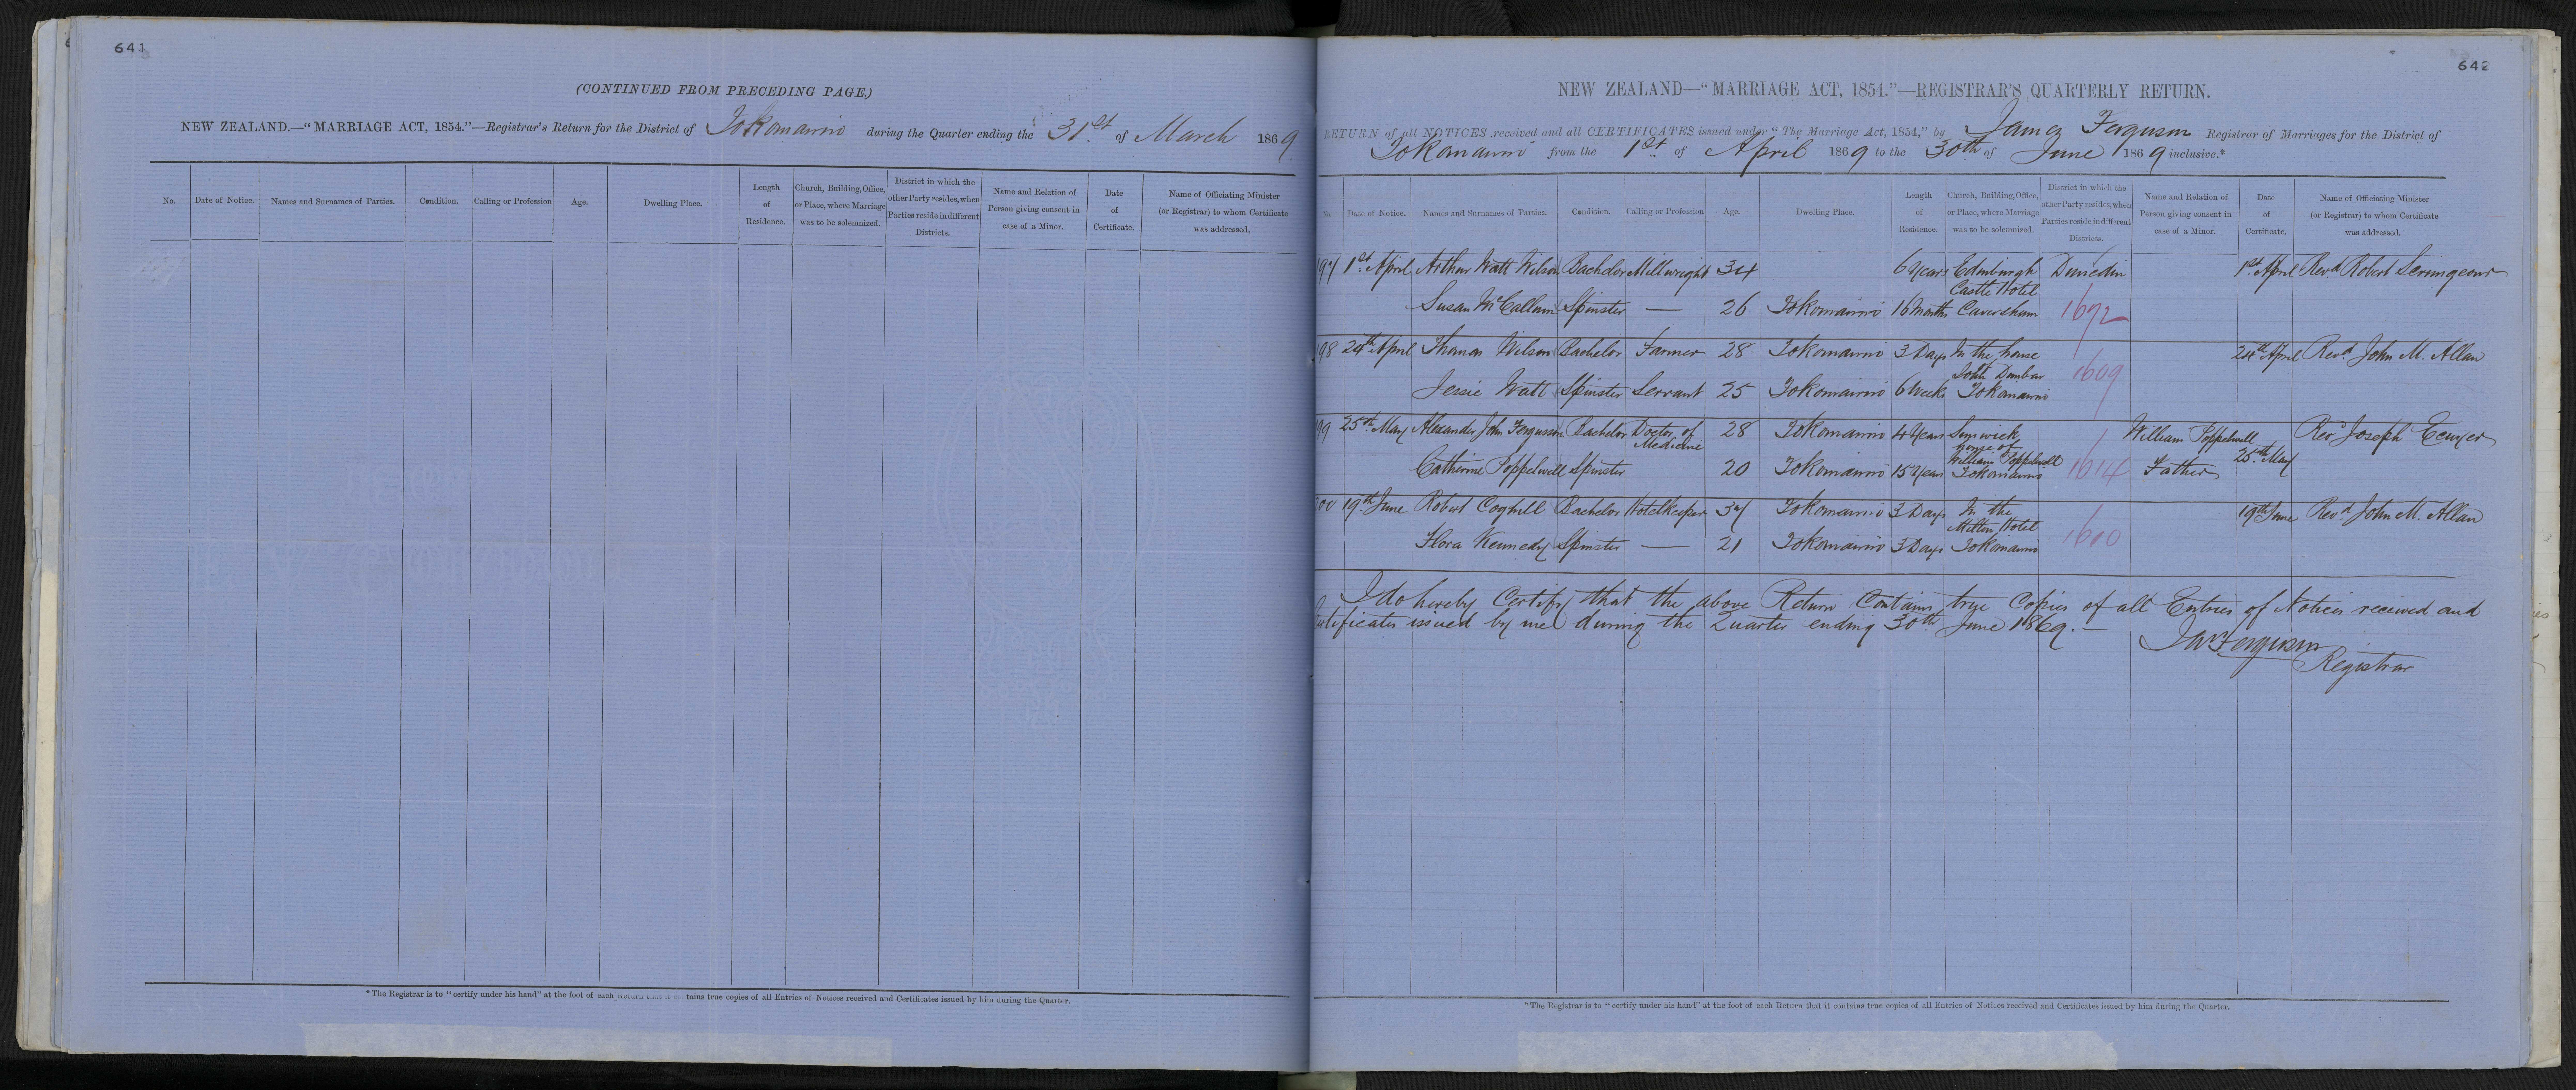 641
(CONTINUED FROM PRECEDING PAGE.)
NEW ZEALAND.—“MARRIAGE ACT, 1854.”—Registrar's Return for the District of Tokomairiro during the Quarter ending the 31st of March 1869
No. Date of Notice. Names and Surnames of Parties. Condition. Calling or Profession Age. Dwelling Place. Length of Residence. Church, Building, Office, or Place, where Marriage was to be solemnized. District in which the other Party resides, when Parties reside in different Districts. Name and Relation of Person giving consent in case of a Minor. Date of Certificate. Name of Officiating Minister (or Registrar) to whom Certificate was addressed.
*The Registrar is to “certify under his hand” at the foot of each Return that it contains true copies of all Entries of Notices received and Certificates issued by him during the Quarter.
642
NEW ZEALAND—“MARRIAGE ACT, 1854.”—REGISTRAR'S QUARTERLY RETURN.
RETURN of all NOTICES received and all CERTIFICATES issued under “The Marriage Act, 1854,” by James Ferguson Registrar of Marriages for the District of
Tokomairiro from the 1st of April 1869 to the 30th of June 1869 inclusive.*
No. Date of Notice. Names and Surnames of Parties. Condition. Calling or Profession Age. Dwelling Place. Length of Residence. Church, Building, Office, or Place, where Marriage was to be solemnized. District in which the other Party resides, when Parties reside in different Districts. Name and Relation of Person giving consent in case of a Minor. Date of Certificate. Name of Officiating Minister (or Registrar) to whom Certificate was addressed.
197 1st April Arthur Watt Wilson Bachelor Millwright 34 6 Years Edinburgh Dunedin 1st April Revd Robert Scrimgeour
Castle Hotel
Susan McCallum Spinster — 26 Tokomairiro 16 Months Caversham 1672
98 24th April Thomas Wilson Bachelor Farmer 28 Tokomairiro 3 Days In the house 24th April Revd John M. Allan
John Dunbar 1609
Jessie Watt Spinster Servant 25 Tokomairiro 6 Weeks Tokomairiro
99 25th May Alexander John Fergusson Bachelor Doctor of Medicine 28 Tokomairiro 4 Years Sunwick William Poppelwell Revd Joseph Ecuyer
house of
William Poppelwell
Catherine Poppelwell Spinster 20 Tokomairiro 15 Years Tokomairiro 1614 Father 25th May
200 19th June Robert Coghill Bachelor Hotelkeeper 37 Tokomairiro 3 Days In the 19th June Revd John M. Allan
Milton Hotel
Flora Kennedy Spinster — 21 Tokomairiro 3 Days Tokomairiro 1610
I do hereby Certify that the above Return Contains true Copies of all Entries of Notices received and
Certificates issued by me during the Quarter ending 30th June 1869.—
Jas Ferguson
Registrar
*The Registrar is to “certify under his hand” at the foot of each Return that it contains true copies of all Entries of Notices received and Certificates issued by him during the Quarter.